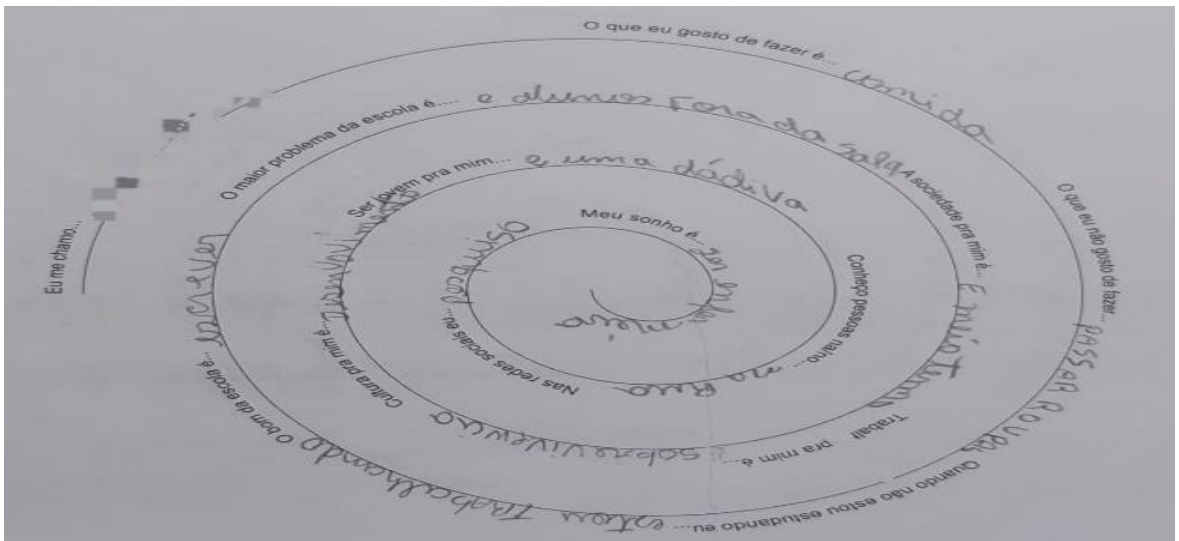 Eu me chamo...
O que eu gosto de fazer é... comida
O que eu não gosto de fazer... PASSAR ROUPAS
Quando não estou estudando eu... estou TRabalhando
O bom da escola é... escrever
O maior problema da escola é.... e alunos Fora da sala
A sociedade pra mim é... E muito
Trabal pra mim é... e sobrevivencia
Cultura pra mim é...
Ser jovem pra mim... e uma dádiva
Conheço pessoas na/no ... na Rua
Nas redes sociais eu... pesquiso
Meu sonho é... ser